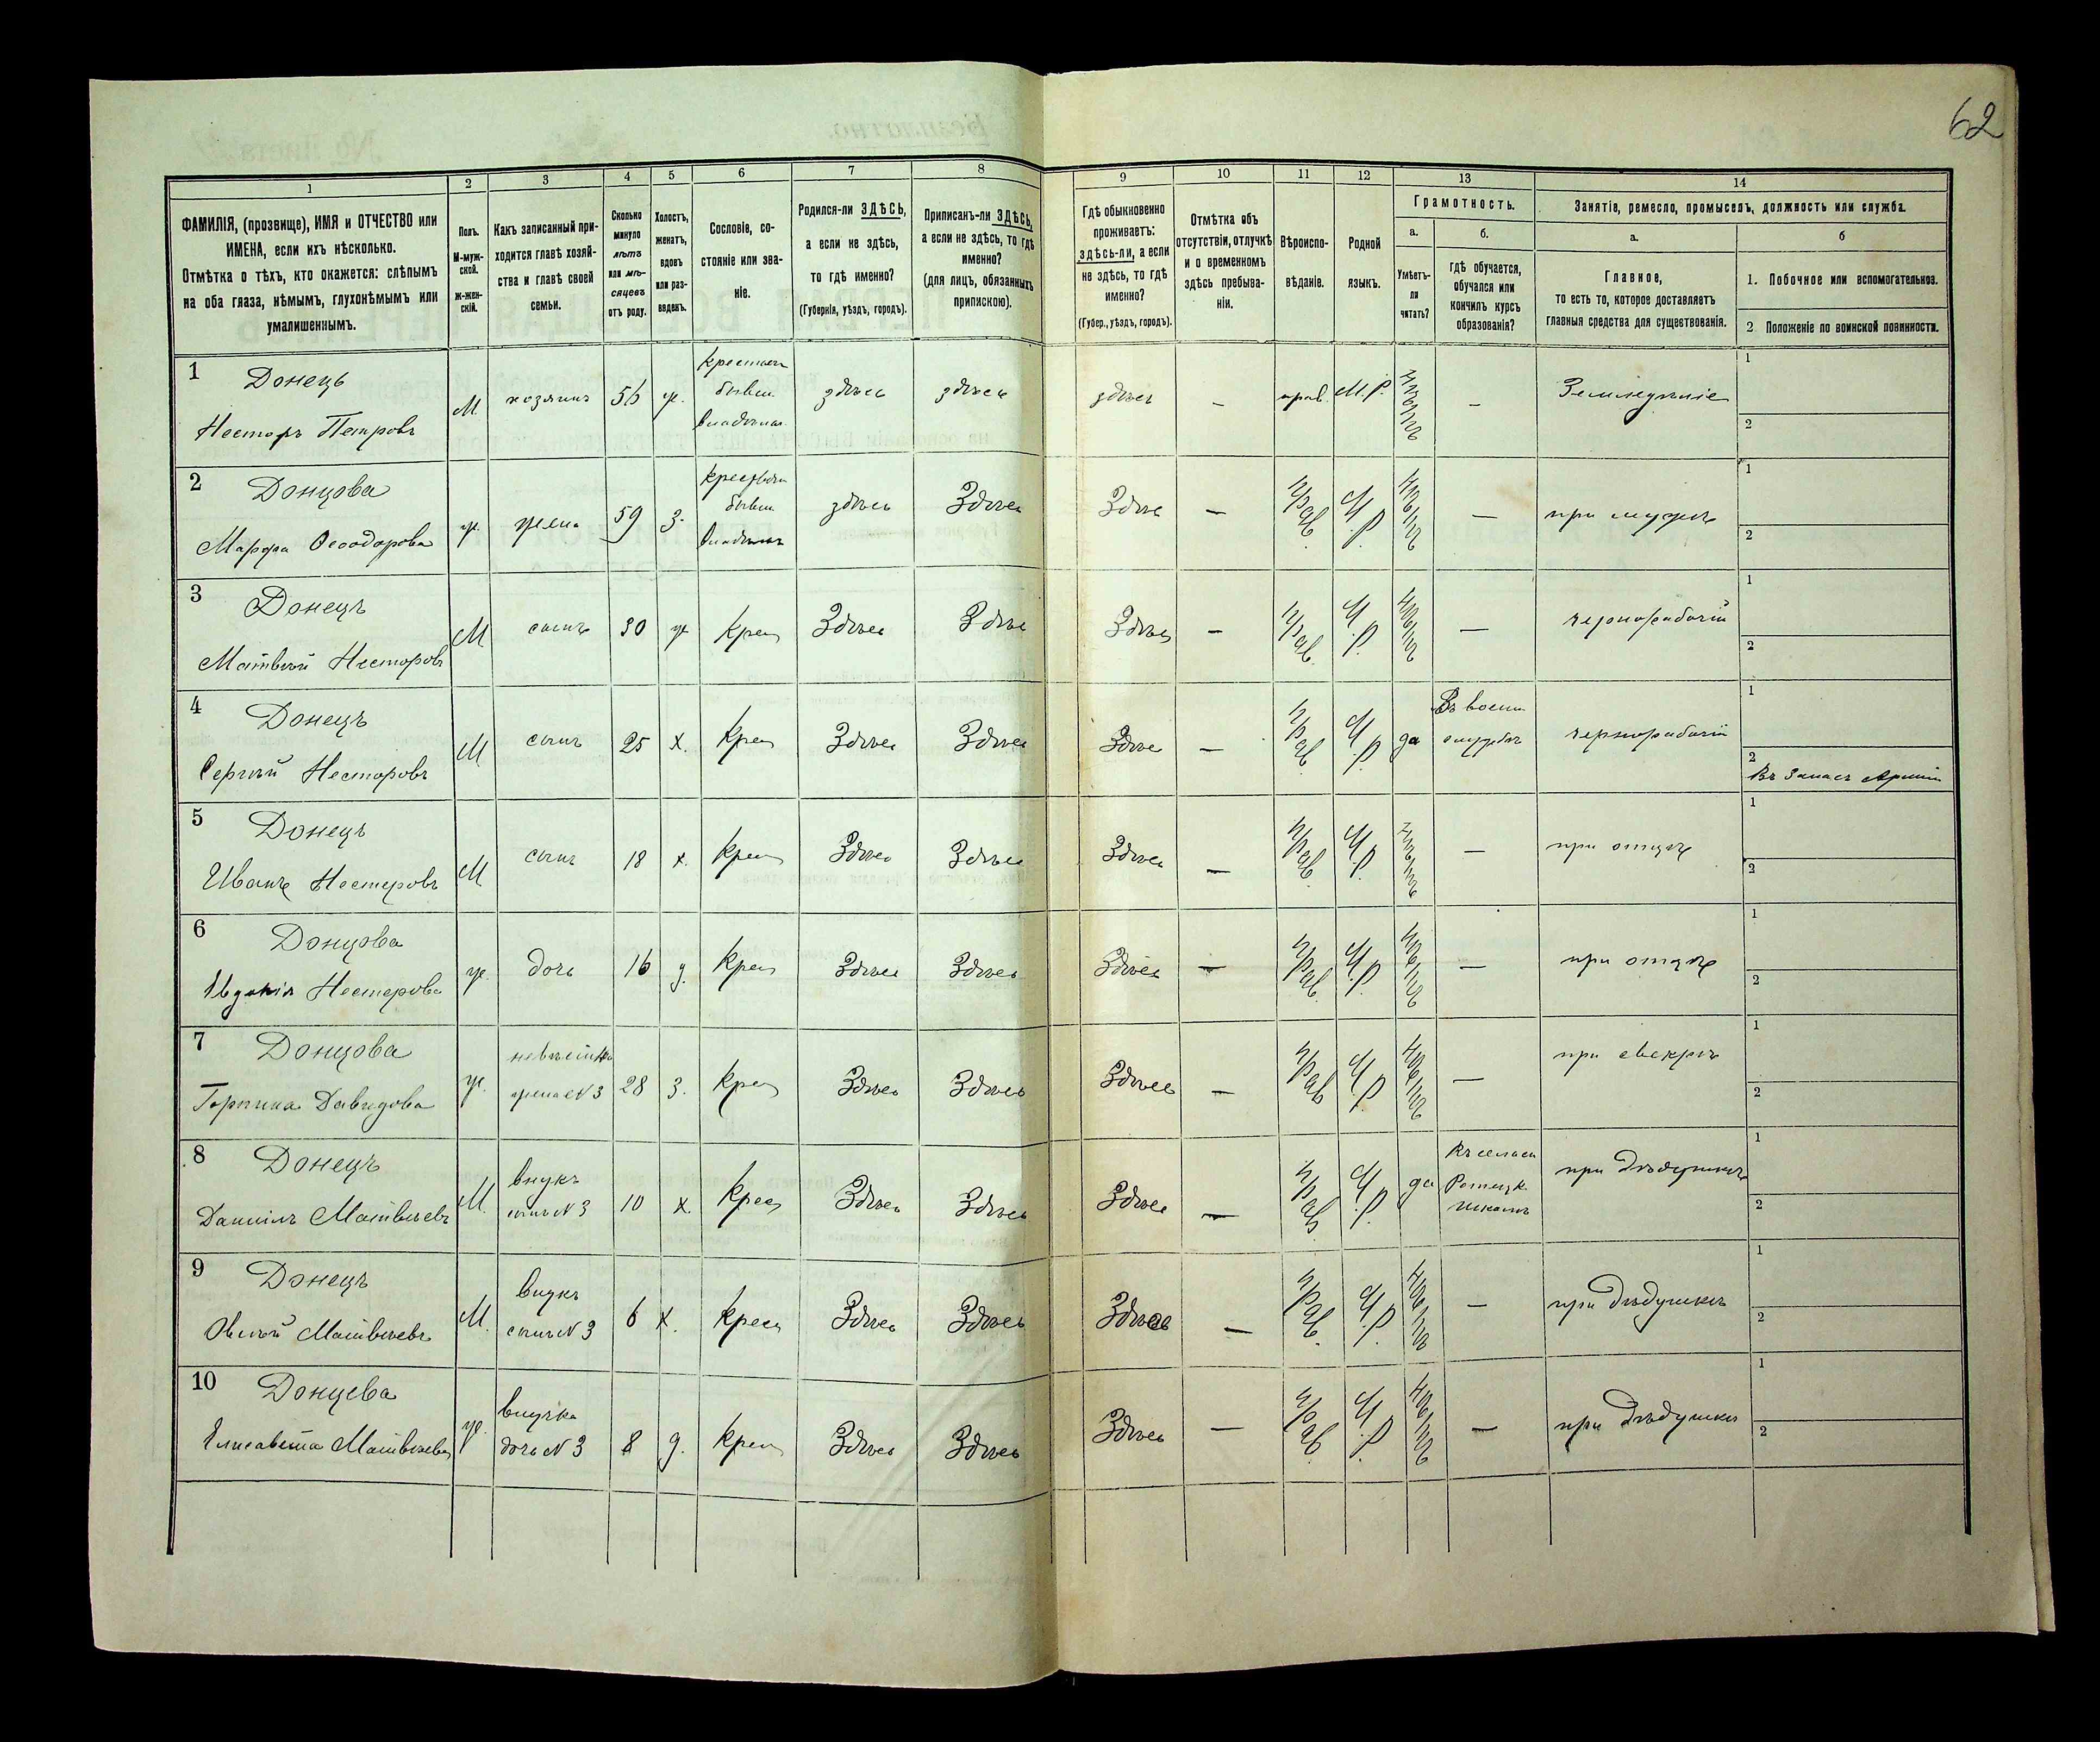 62
1 2 3 4 5 6 7 8 9 10 11 12 13 14
ФАМИЛІЯ, (прозвище), ИМЯ и ОТЧЕСТВО или
ИМЕНА, если ихъ нѣсколько.
Отмѣтка о тѣхъ, кто окажется: слѣпымъ
на оба глаза, нѣмымъ, глухонѣмымъ или
умалишеннымъ.
Полъ.
М-муж-
ской.
ж-жен-
скій.
Какъ записанный при-
ходится главѣ хозяй-
ства и главѣ своей
семьи.
Сколько
минуло
лѣтъ
или мѣ-
сяцевъ
отъ роду.
Холостъ,
женатъ,
вдовъ
или раз-
веденъ.
Сословіе, со-
стояніе или зва-
ніе.
Родился-ли ЗДѢСЬ,
а если не здѣсь,
то гдѣ именно?
(Губернія, уѣздъ, городъ).
Приписанъ-ли ЗДѢСЬ,
а если не здѣсь, то гдѣ
именно?
(для лицъ, обязанныхъ
припискою).
Гдѣ обыкновенно
проживаетъ:
здѣсь-ли, а если
не здѣсь, то гдѣ
именно?
(Губер., уѣздъ, городъ).
Отмѣтка объ
отсутствіи, отлучкѣ
и о временномъ
здѣсь пребыва-
ніи.
Вѣроиспо-
вѣданіе.
Родной
языкъ.
Грамотность.
а.
Умѣетъ-
ли
читать?
б.
гдѣ обучается,
обучался или
кончилъ курсъ
образованія?
Занятіе, ремесло, промыселъ, должность или служба.
а.
Главное,
то есть то, которое доставляетъ
главныя средства для существованія.
б
1. Побочное или вспомогательное.
2 Положеніе по воинской повинности.
1 Донецъ
Несторъ Петровъ
М хозяинъ 56 ж.
бывш.
здѣсь здѣсь здѣсь — прав. М.Р. нѣтъ — Земледѣліе
1
2
2 Донцова
Марфа Ѳеодорова
ж. жена 59 з.
бывш
здѣсь Здѣсь Здѣсь — прав. М.Р. нѣтъ — при мужѣ
1
2
3 Донецъ
Матвѣй Несторовъ
М сынъ 30 ж Крес Здѣсь Здѣсь Здѣсь — прав. М.Р. нѣтъ — чернорабочій
1
2
4 Донецъ
Сергѣй Несторовъ
М сынъ 25 х. Крес Здѣсь Здѣсь Здѣсь — прав. М.Р. да
Въ воен
службѣ
чернорабочій
1
2
Въ Запасѣ Арміи
5 Донецъ
Иванъ Нестеровъ
М сынъ 18 х. Крес Здѣсь Здѣсь Здѣсь — прав. М.Р. нѣтъ — при отцѣ
1
2
6 Донцова
Евдокія Нестерова
ж. дочь 16 д. Крес Здѣсь Здѣсь Здѣсь — прав. М.Р. нѣтъ — при отцѣ
1
2
7 Донцова
Горпина Давидова
ж.
невѣстка
жена N 3
28 з. Крес Здѣсь Здѣсь Здѣсь — прав. М.Р. нѣтъ — при свекрѣ
1
2
8 Донецъ
Даніилъ Матвѣевъ
М.
внукъ
сынъ N 3
10 х. Крес Здѣсь Здѣсь Здѣсь — прав. М.Р. да
школѣ
при дѣдушкѣ
1
2
9 Донецъ
Матвѣевъ
М.
внукъ
сынъ N 3
6 х. Крес Здѣсь Здѣсь Здѣсь — прав. М.Р. нѣтъ — при дѣдушкѣ
1
2
10 Донцева
Елисавета Матвѣева
ж.
внучка
дочь N 3
8 д. Крес Здѣсь Здѣсь Здѣсь — прав. М.Р. нѣтъ — при дѣдушкѣ
1
2